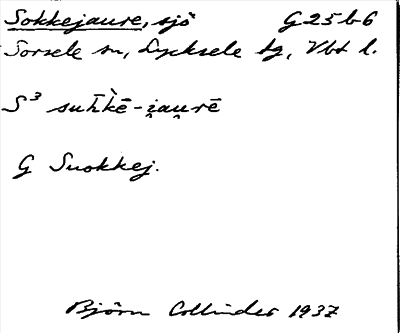 Sokkejaure, sjö G25b6
Sorsele sn, Lycksele lg, Vbt l.
S³ suh̄k̀ē-i̯au̯rē
G Suokkej.
Björn Collinder 1937